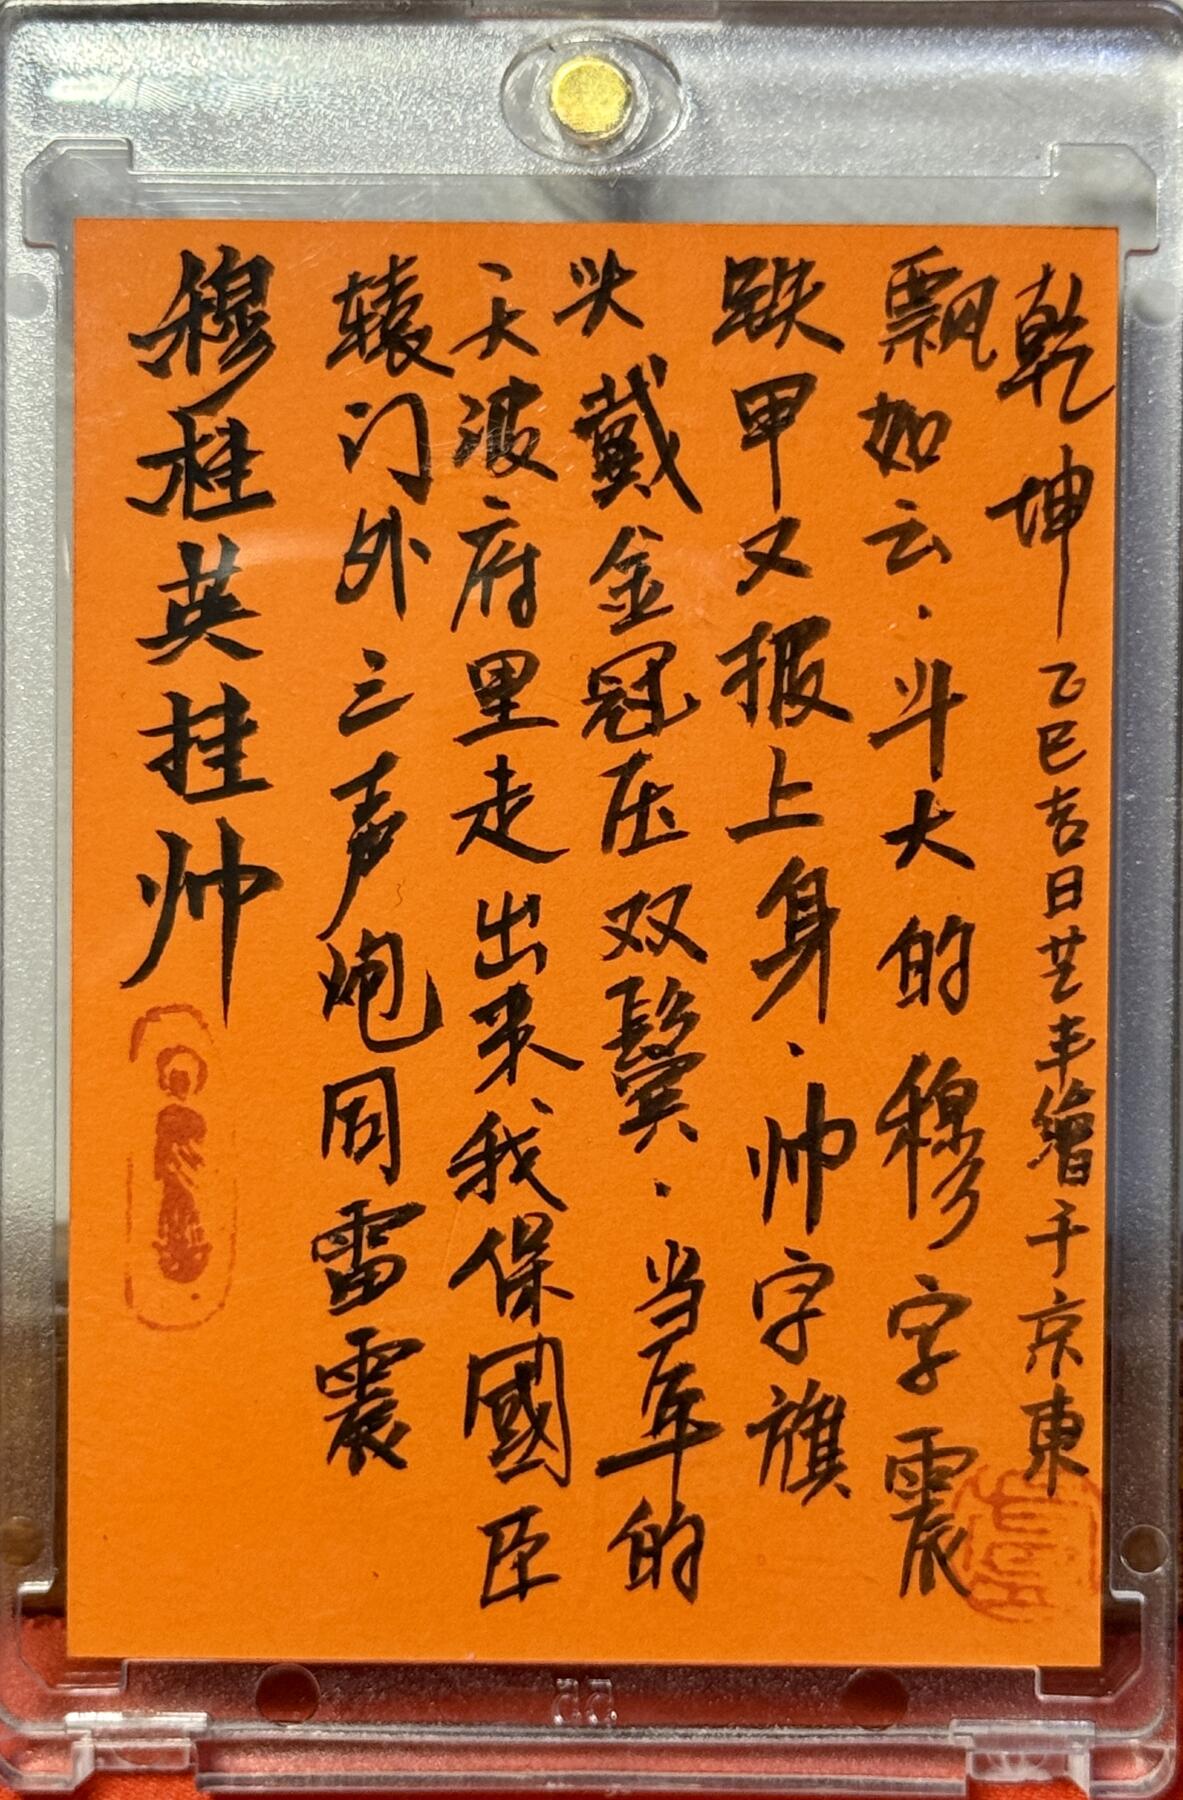 穆桂英挂帅
辕门外三声炮同雷震
天波府里走出来我保國臣
头戴金冠压双鬓·当年的
铁甲又报上身·帅字旗
飘如云·斗大的穆字震
乾坤 乙巳吉日芸丰繪于京東